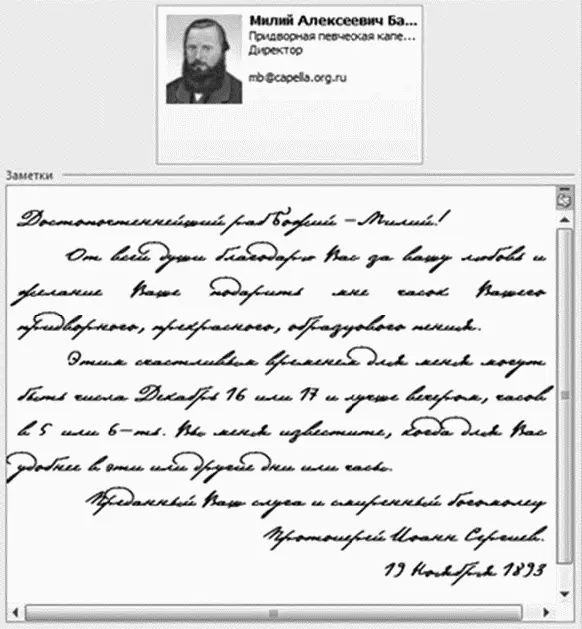 Милий Алексеевич Ба...
Придворная певческая капе...
Директор
mb@capella.org.ru
Заметки
Достопочтеннейший раб Божий – Милий!
От всей души благодарю Вас за вашу любовь и
желание Ваше подарить мне часок Вашего
придворного, прекрасного, образцового пения.
Этим счастливым временем для меня могут
быть числа Декабрь 16 или 17 и лучше вечером, часов
в 5 или 6-ть. Вы меня известите, когда для Вас
удобнее в эти или другие дни или часы.
Преданный Ваш слуга и смиренный богомолец
Протоиерей Иоанн Сергиев.
19 Ноября 1893